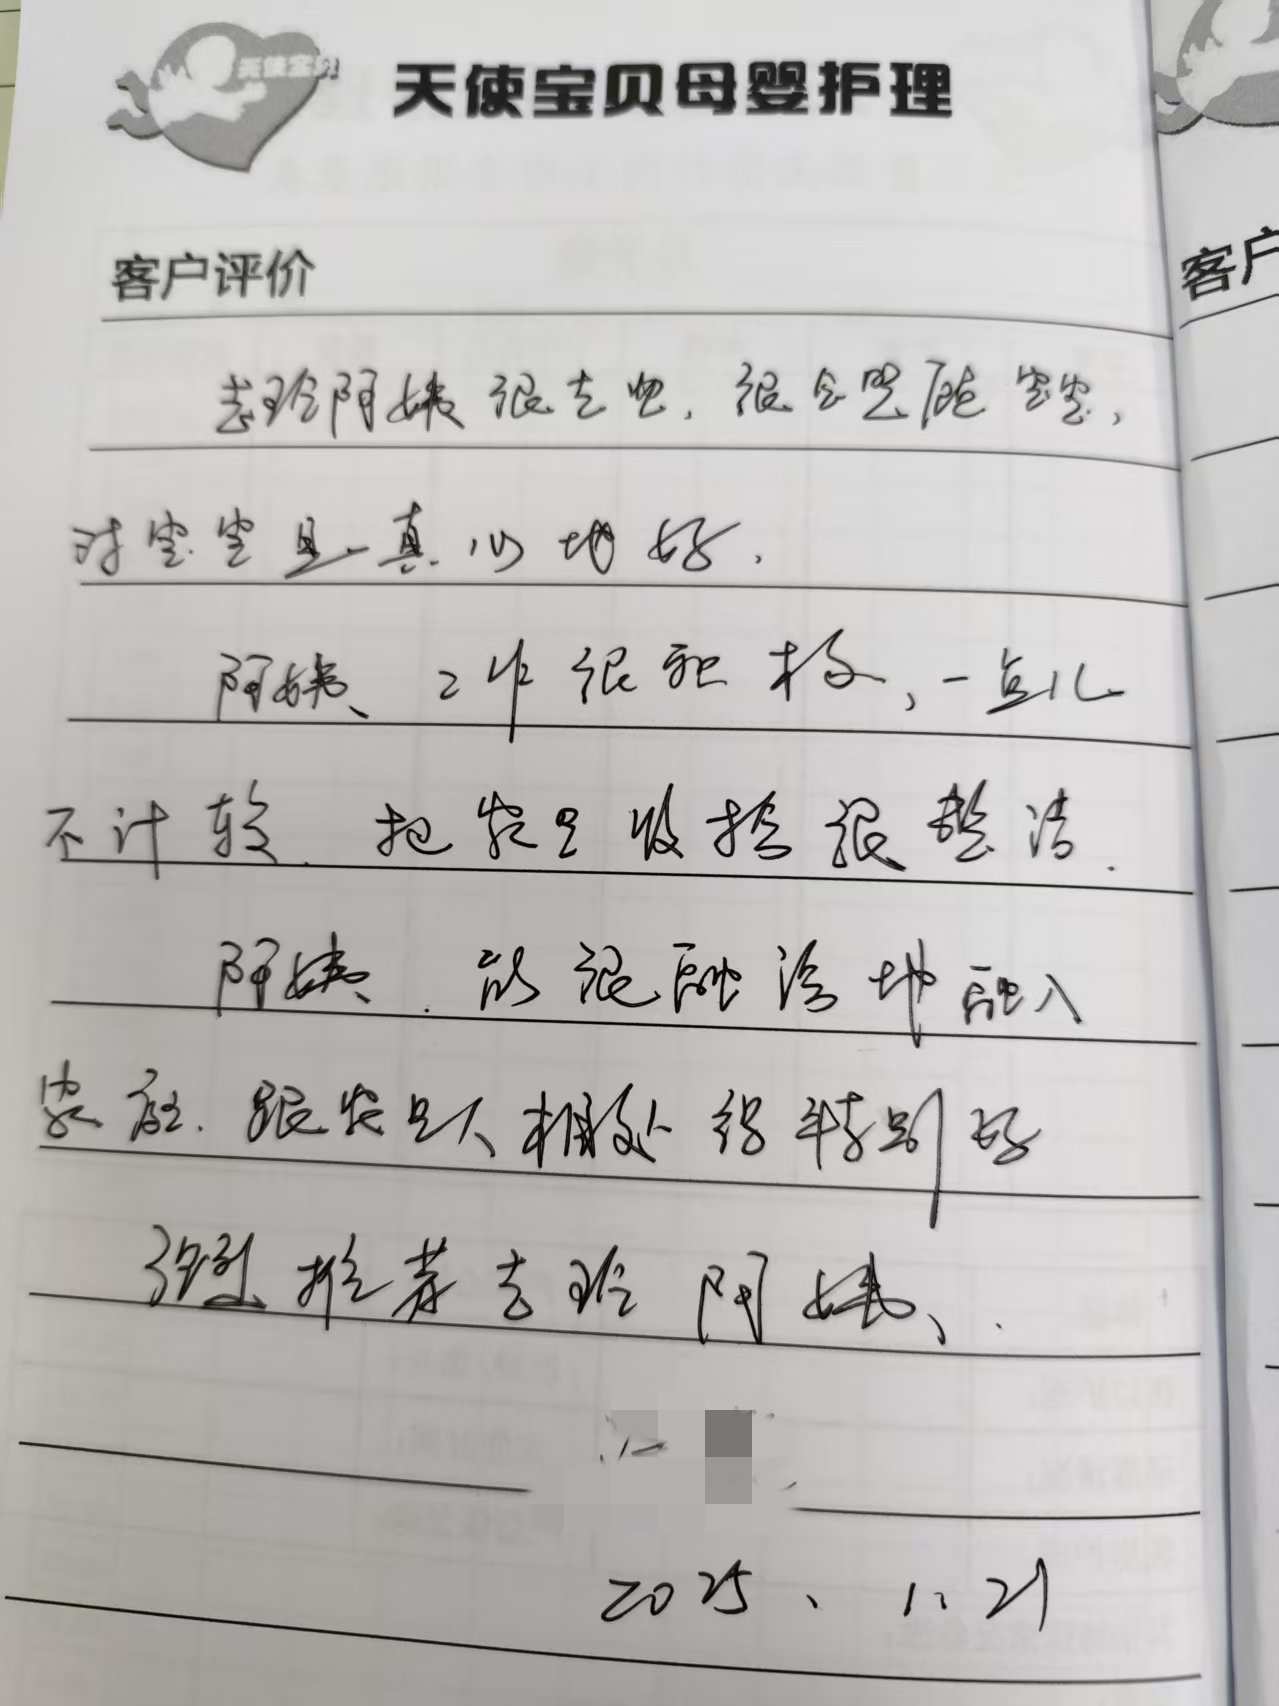 天使宝贝
天使宝贝母婴护理
客户评价
客户
志玲阿姨很专业，很会照顾宝宝，
对宝宝是真心地好.
阿姨工作很积极，一点儿
不计较.把家里收拾很整洁.
阿姨.能很融洽地融入
家庭.跟家里人相处得特别好
强烈推荐志玲阿姨.
2025、1、21